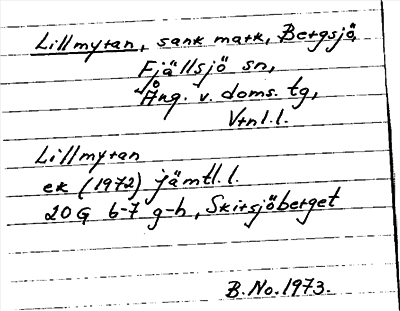 Lillmyran, sank mark, Bergsjö,
Fjällsjö sn,
Ång. v. doms. tg,
Vtnl.l.
Lillmyran
ek (1972) jämtl.l.
20G 6-7 g-h, Skirsjöberget
B.No.1973.